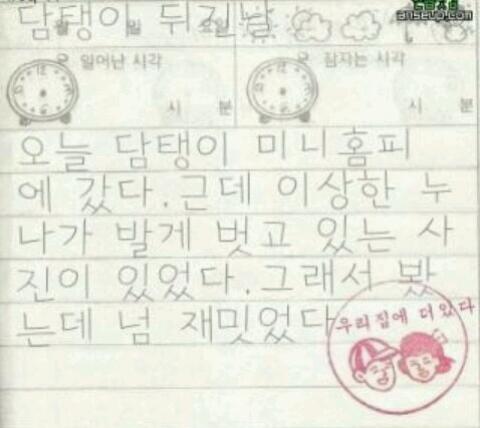 담탱이 뒤진날
월 일 요일
일어난 시각 잠자는 시각
시 분 시 분
오늘 담탱이 미니홈피
에 갔다.근데 이상한 누
나가 발게 벗고 있는 사
진이 있었다.그래서 봤
는데 넘 재밋었다
우리집에 더있다